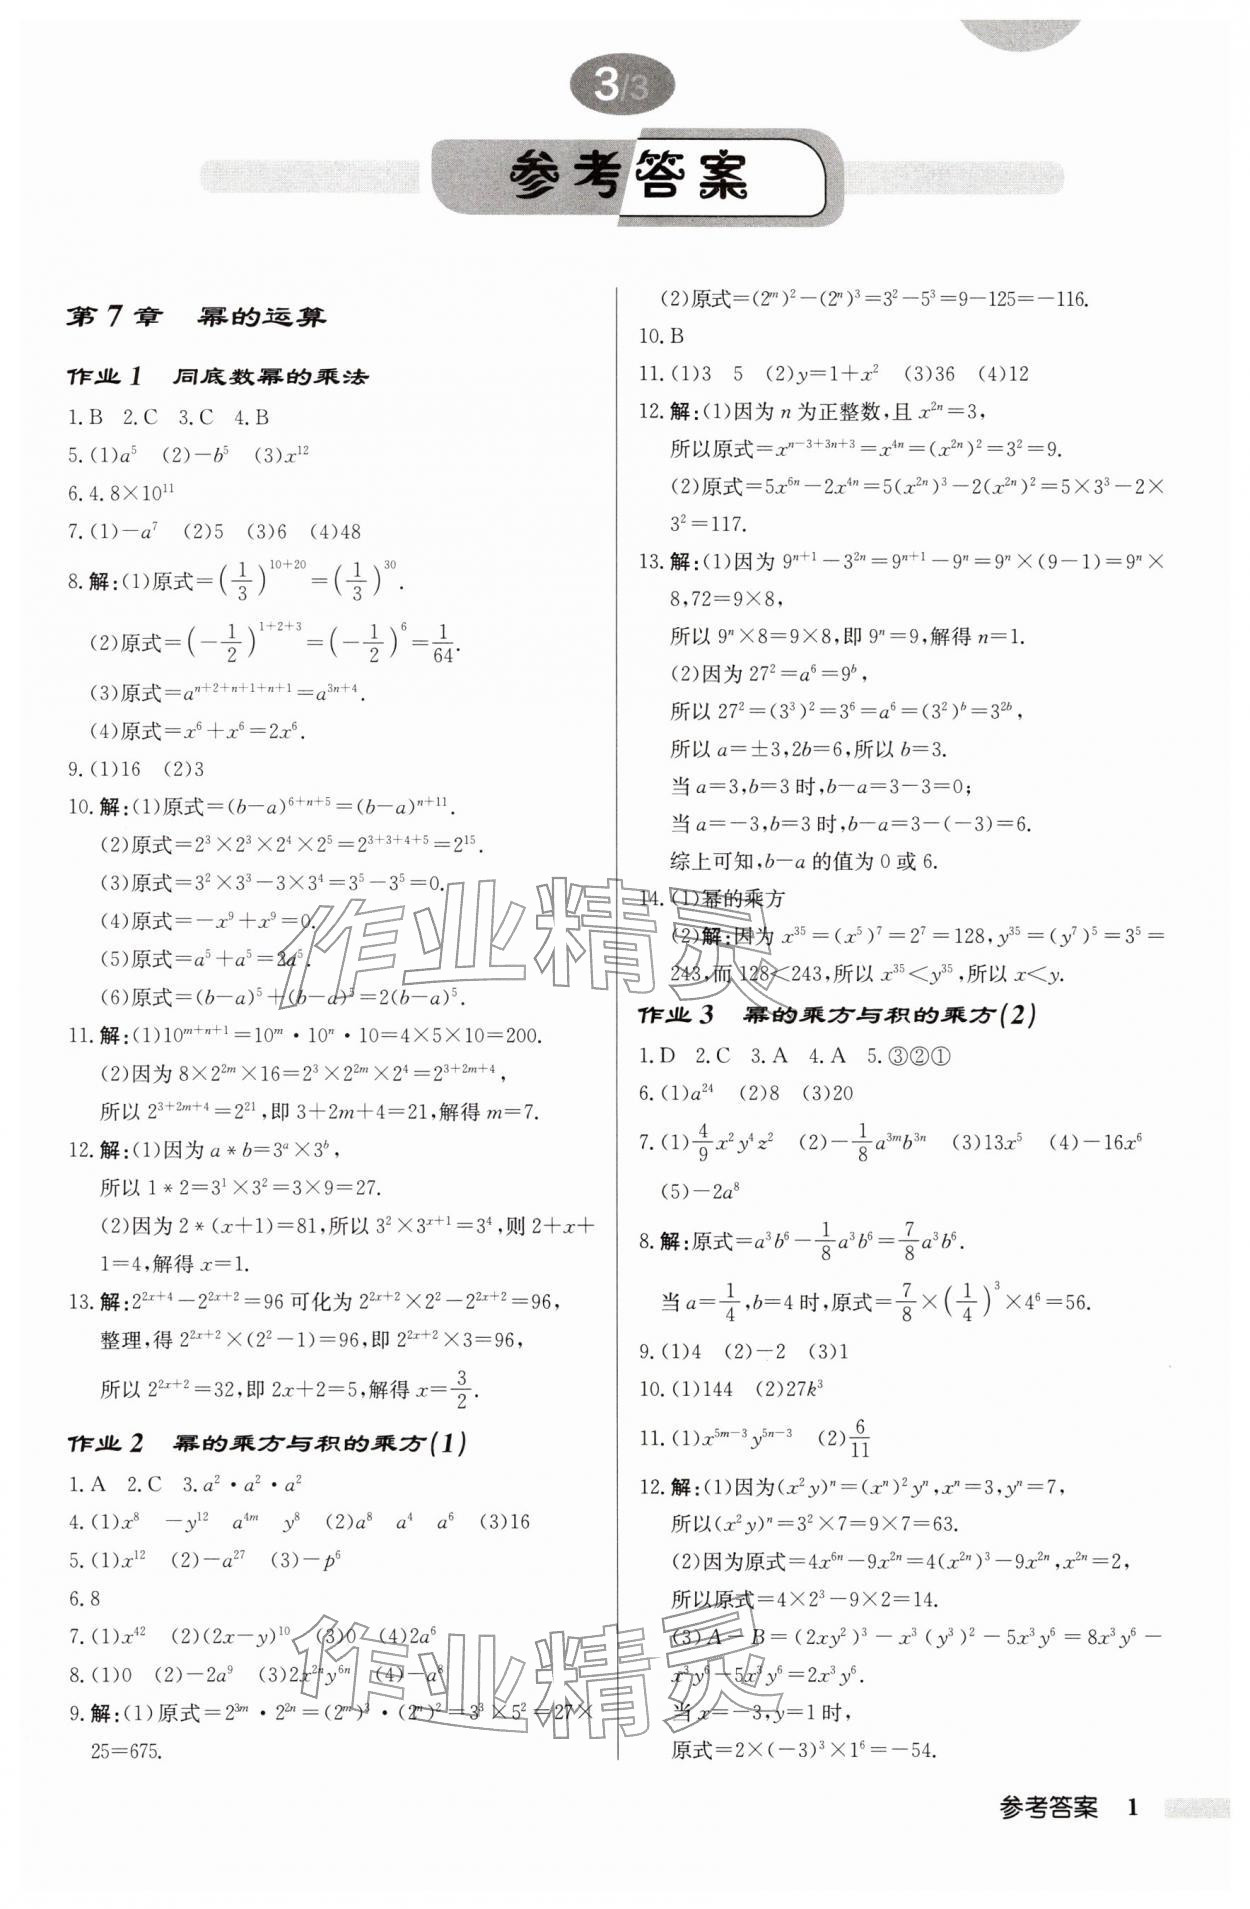 3/3
参考答案
第 7 章 幂的运算
作业 1 同底数幂的乘法
1. B 2. C 3. C 4. B
5. (1)a⁵ (2)−b⁵ (3)x¹²
6. 4.8×10¹¹
7. (1)−a⁷ (2)5 (3)6 (4)48
8. 解:(1)原式=(1/3)¹⁰⁺²⁰=(1/3)³⁰.
(2)原式=(−1/2)¹⁺²⁺³=(−1/2)⁶=1/64.
(3)原式=aⁿ⁺²⁺ⁿ⁺¹⁺ⁿ⁺¹=a³ⁿ⁺⁴.
(4)原式=x⁶+x⁶=2x⁶.
9. (1)16 (2)3
10. 解:(1)原式=(b−a)⁶⁺ⁿ⁺⁵=(b−a)ⁿ⁺¹¹.
(2)原式=2³×2³×2⁴×2⁵=2³⁺³⁺⁴⁺⁵=2¹⁵.
(3)原式=3²×3³−3×3⁴=3⁵−3⁵=0.
(4)原式=−x⁹+x⁹=0.
(5)原式=a⁵+a⁵=2a⁵.
(6)原式=(b−a)⁵+(b−a)⁵=2(b−a)⁵.
11. 解:(1)10ᵐ⁺ⁿ⁺¹=10ᵐ·10ⁿ·10=4×5×10=200.
(2)因为 8×2²ᵐ×16=2³×2²ᵐ×2⁴=2³⁺²ᵐ⁺⁴,
所以 2³⁺²ᵐ⁺⁴=2²¹,即 3+2m+4=21,解得 m=7.
12. 解:(1)因为 a*b=3ᵃ×3ᵇ,
所以 1*2=3¹×3²=3×9=27.
(2)因为 2*(x+1)=81,所以 3²×3ˣ⁺¹=3⁴,则 2+x+
1=4,解得 x=1.
13. 解:2²ˣ⁺⁴−2²ˣ⁺²=96 可化为 2²ˣ⁺²×2²−2²ˣ⁺²=96,
整理,得 2²ˣ⁺²×(2²−1)=96,即 2²ˣ⁺²×3=96,
所以 2²ˣ⁺²=32,即 2x+2=5,解得 x=3/2.
作业 2 幂的乘方与积的乘方(1)
1. A 2. C 3. a²·a²·a²
4. (1)x⁸ −y¹² a⁴ᵐ y⁸ (2)a⁸ a⁴ a⁶ (3)16
5. (1)x¹² (2)−a²⁷ (3)−p⁶
6. 8
7. (1)x⁴² (2)(2x−y)¹⁰ (3)0 (4)2a⁶
8. (1)0 (2)−2a⁹ (3)2x²ⁿy⁶ⁿ (4)−a⁸
9. 解:(1)原式=2³ᵐ·2²ⁿ=(2ᵐ)³·(2ⁿ)²=3³×5²=27×
25=675.
(2)原式=(2ᵐ)²−(2ⁿ)³=3²−5³=9−125=−116.
10. B
11. (1)3 5 (2)y=1+x² (3)36 (4)12
12. 解:(1)因为 n 为正整数,且 x²ⁿ=3,
所以原式=xⁿ⁻³⁺³ⁿ⁺³=x⁴ⁿ=(x²ⁿ)²=3²=9.
(2)原式=5x⁶ⁿ−2x⁴ⁿ=5(x²ⁿ)³−2(x²ⁿ)²=5×3³−2×
3²=117.
13. 解:(1)因为 9ⁿ⁺¹−3²ⁿ=9ⁿ⁺¹−9ⁿ=9ⁿ×(9−1)=9ⁿ×
8,72=9×8,
所以 9ⁿ×8=9×8,即 9ⁿ=9,解得 n=1.
(2)因为 27²=a⁶=9ᵇ,
所以 27²=(3³)²=3⁶=a⁶=(3²)ᵇ=3²ᵇ,
所以 a=±3,2b=6,所以 b=3.
当 a=3,b=3 时,b−a=3−3=0;
当 a=−3,b=3 时,b−a=3−(−3)=6.
综上可知,b−a 的值为 0 或 6.
14. (1)幂的乘方
(2)解:因为 x³⁵=(x⁵)⁷=2⁷=128,y³⁵=(y⁷)⁵=3⁵=
243,而 128<243,所以 x³⁵<y³⁵,所以 x<y.
作业 3 幂的乘方与积的乘方(2)
1. D 2. C 3. A 4. A 5. ③②①
6. (1)a²⁴ (2)8 (3)20
7. (1)4/9x²y⁴z² (2)−1/8a³ᵐb³ⁿ (3)13x⁵ (4)−16x⁶
(5)−2a⁸
8. 解:原式=a³b⁶−1/8a³b⁶=7/8a³b⁶.
当 a=1/4,b=4 时,原式=7/8×(1/4)³×4⁶=56.
9. (1)4 (2)−2 (3)1
10. (1)144 (2)27k³
11. (1)x⁵ᵐ⁻³y⁵ⁿ⁻³ (2)6/11
12. 解:(1)因为(x²y)ⁿ=(xⁿ)²yⁿ,xⁿ=3,yⁿ=7,
所以(x²y)ⁿ=3²×7=9×7=63.
(2)因为原式=4x⁶ⁿ−9x²ⁿ=4(x²ⁿ)³−9x²ⁿ,x²ⁿ=2,
所以原式=4×2³−9×2=14.
(3)A−B=(2xy²)³−x³(y³)²−5x³y⁶=8x³y⁶−
x³y⁶−5x³y⁶=2x³y⁶.
当 x=−3,y=1 时,
原式=2×(−3)³×1⁶=−54.
作业精灵
作业精灵
参考答案 1